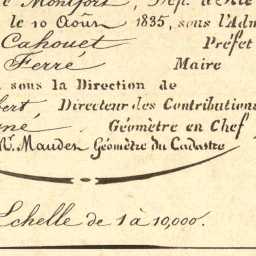 de Montfort, Dép.
le 10 Août 1835, sous l'Adm
Cahouet Préfet
Ferré Maire
sous la Direction de
bert, Directeur des Contributions
né, Géomètre en Chef
Mr. Mauden Géomètre du Cadastre
Echelle de 1 à 10,000.